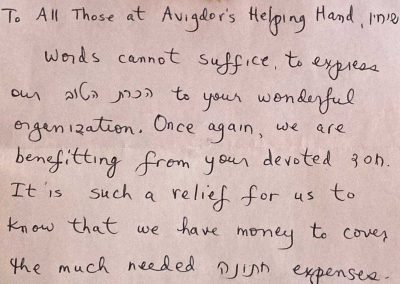 To All Those at Avigdor's Helping Hand, שיחיו
Words cannot suffice, to express
our הכרת הטוב to your wonderful
organization. Once again, we are
benefitting from your devoted חסד.
It is such a relief for us to
know that we have money to cover
the much needed חתונה expenses.